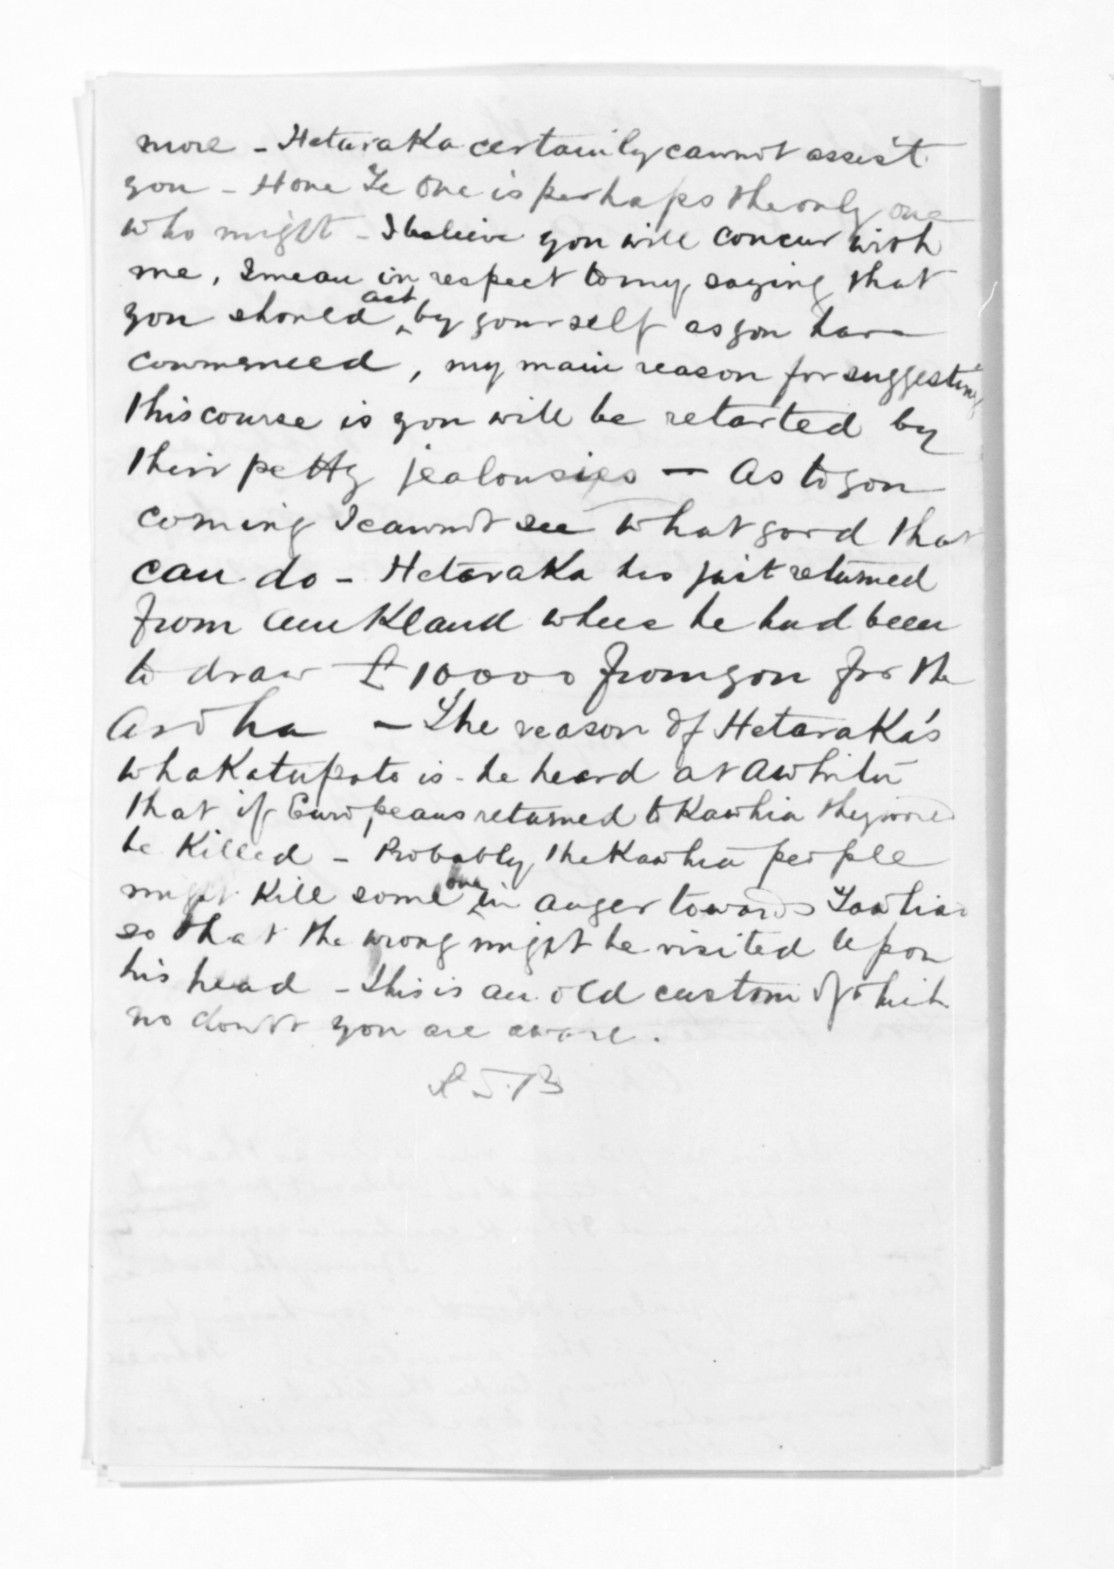 more - Hetaraka certainly cannot assist
you - Hone Te One is perhaps the only one
who might - I believe you will concur with
me, I mean in respect to my saying that
you should act by yourself as you have
commenced, my main reason for suggesting
this course is you will be retarted by
their petty jealousies - As to you
coming I cannot see what good that
can do - Hetaraka has just returned
from Auckland where he had been
to draw £10000 from you for the
Aroha - The reason of Hetaraka's
whakatupato is - he heard at Awhitu
that if Europeans returned to Kawhia they would
be killed - Probably the Kawhia people
might kill some one in anger towards Tawhiao
so that the wrong might be visited upon
his head - this is an old custom of which
no doubt you are aware.
R S. B